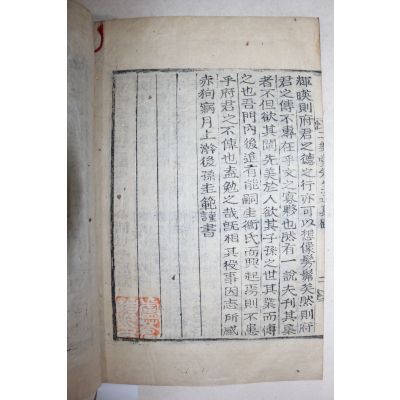 輝暎則府君之德之行亦可以想像髣髴矣然則府
君之傳不專在乎文之寡夥也然有一說夫刊其稾
者不但欲其闡先美於人欲其子孫之世其業而傳
之也吾門內後進有能嗣圭衡氏而興起焉則不患
乎府君之不傳也盍勉之哉旣相其授事因志所感
赤狗病月上澣後孫圭範謹書